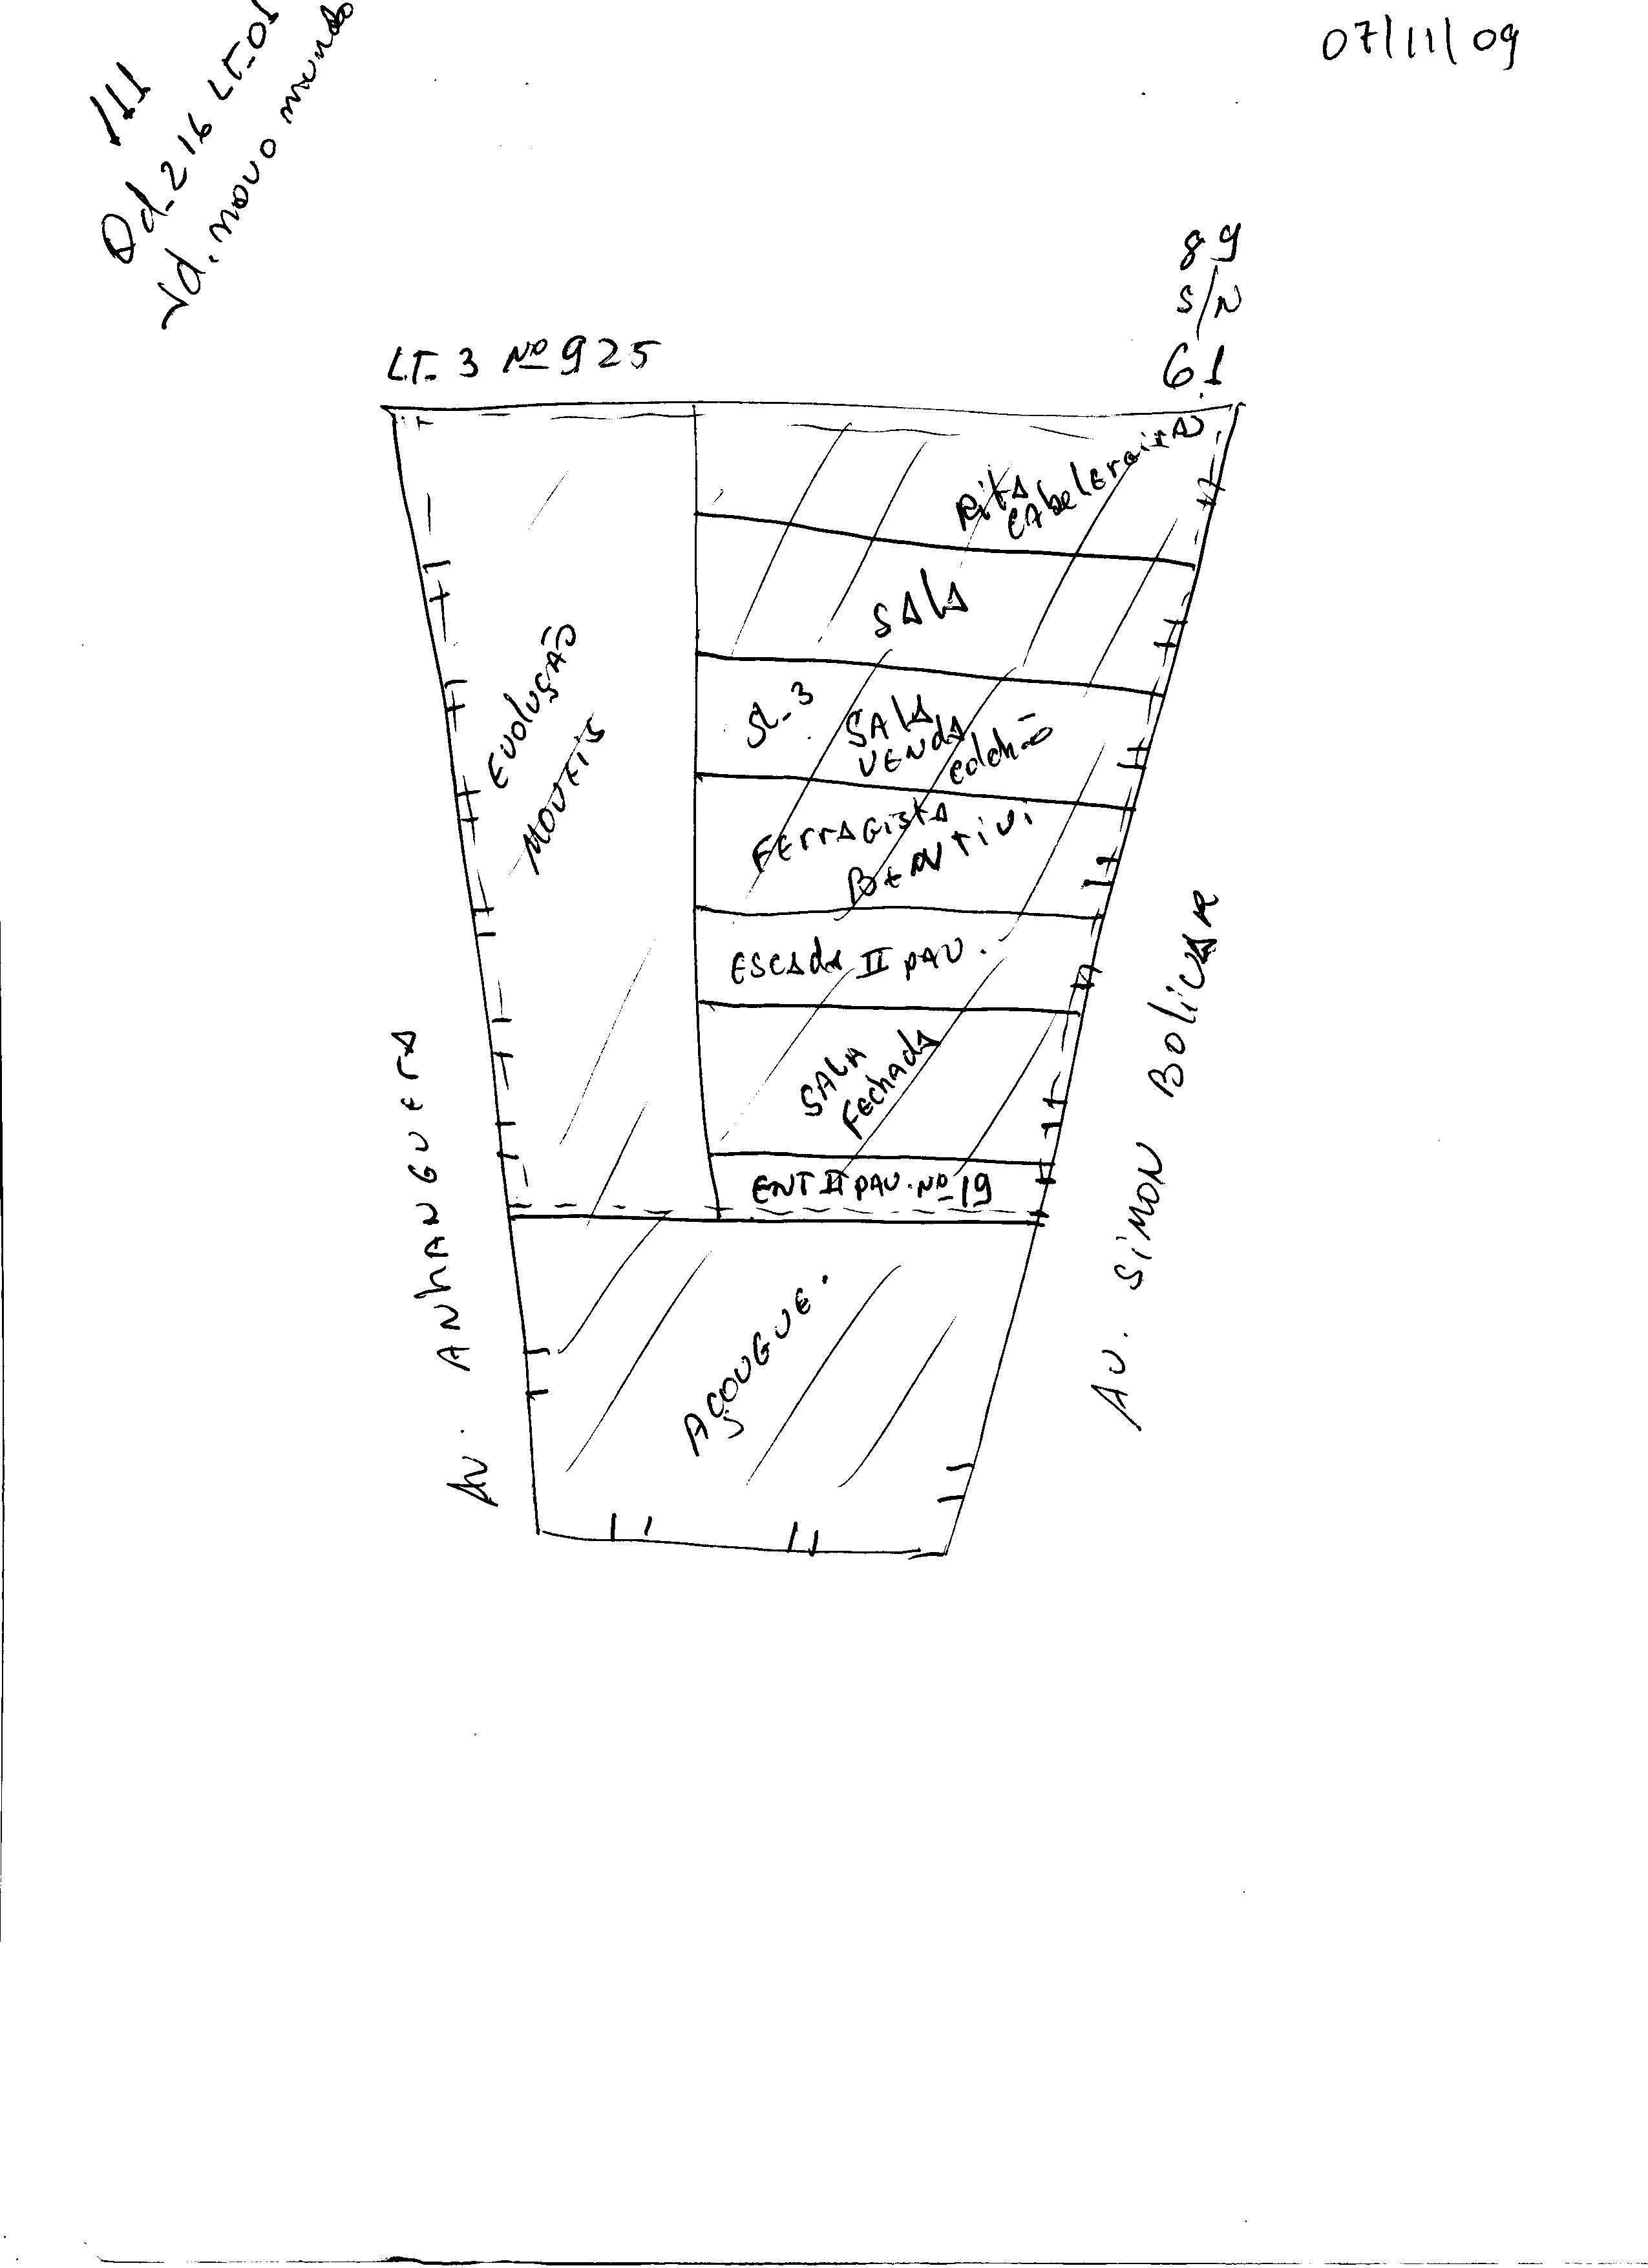 07/11/09
111
Qd-216 LT-01
Jd. novo mundo
89
S/N
61
LT- 3 Nº 925
Rita
CAbeleroirA
SALA
SL-3
SALA
VENdA
colchão
FErrAGistA
BEM TIVI
ESCAdA II PAV.
SALA
FEchAdA
ENT II PAV. Nº 19
EVOLUÇÃO
MOVEIS
AÇOUGUE.
AV. ANhANGUErA
AV. SIMON BOLIVAR